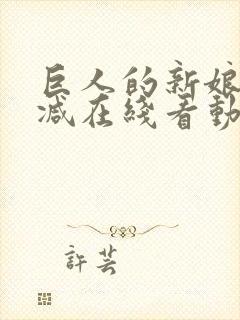 巨人的新娘
减在綫看動
許芸